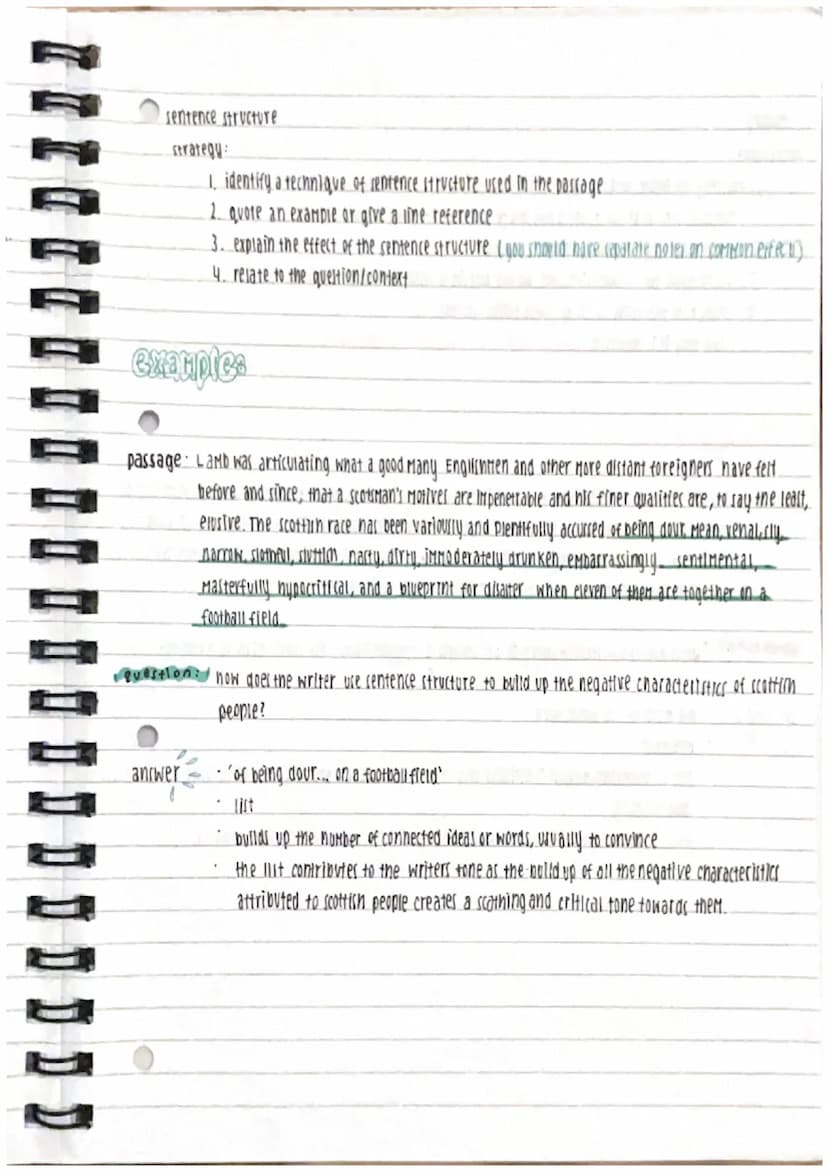 sentence structure
strategy:
1. identify a technique of sentence structure used in the passage
2. quote an example or give a line reference
3. explain the effect of the sentence structure (you should have separate notes on common effects)
4. relate to the question/context
examples
passage: Lamb was articulating what a good many Englishmen and other more distant foreigners have felt
before and since, that a scotsman's motives are impenetrable and his finer qualities are, to say the least,
elusive. The scottish race has been variously and plentifully accused of being dour, mean, venal, sly,
narrow, slothful, sluttish, nasty, dirty, immoderately drunken, embarrassingly sentimental,
masterfully hypocritical, and a blueprint for disaster when eleven of them are together on a
football field.
question: how does the writer use sentence structure to build up the negative characteristics of scottish
people?
answer · 'of being dour... on a football field'
· list
· builds up the number of connected ideas or words, usually to convince
· the list contributes to the writers tone as the build up of all the negative characteristics
attributed to scottish people creates a scathing and critical tone towards them.